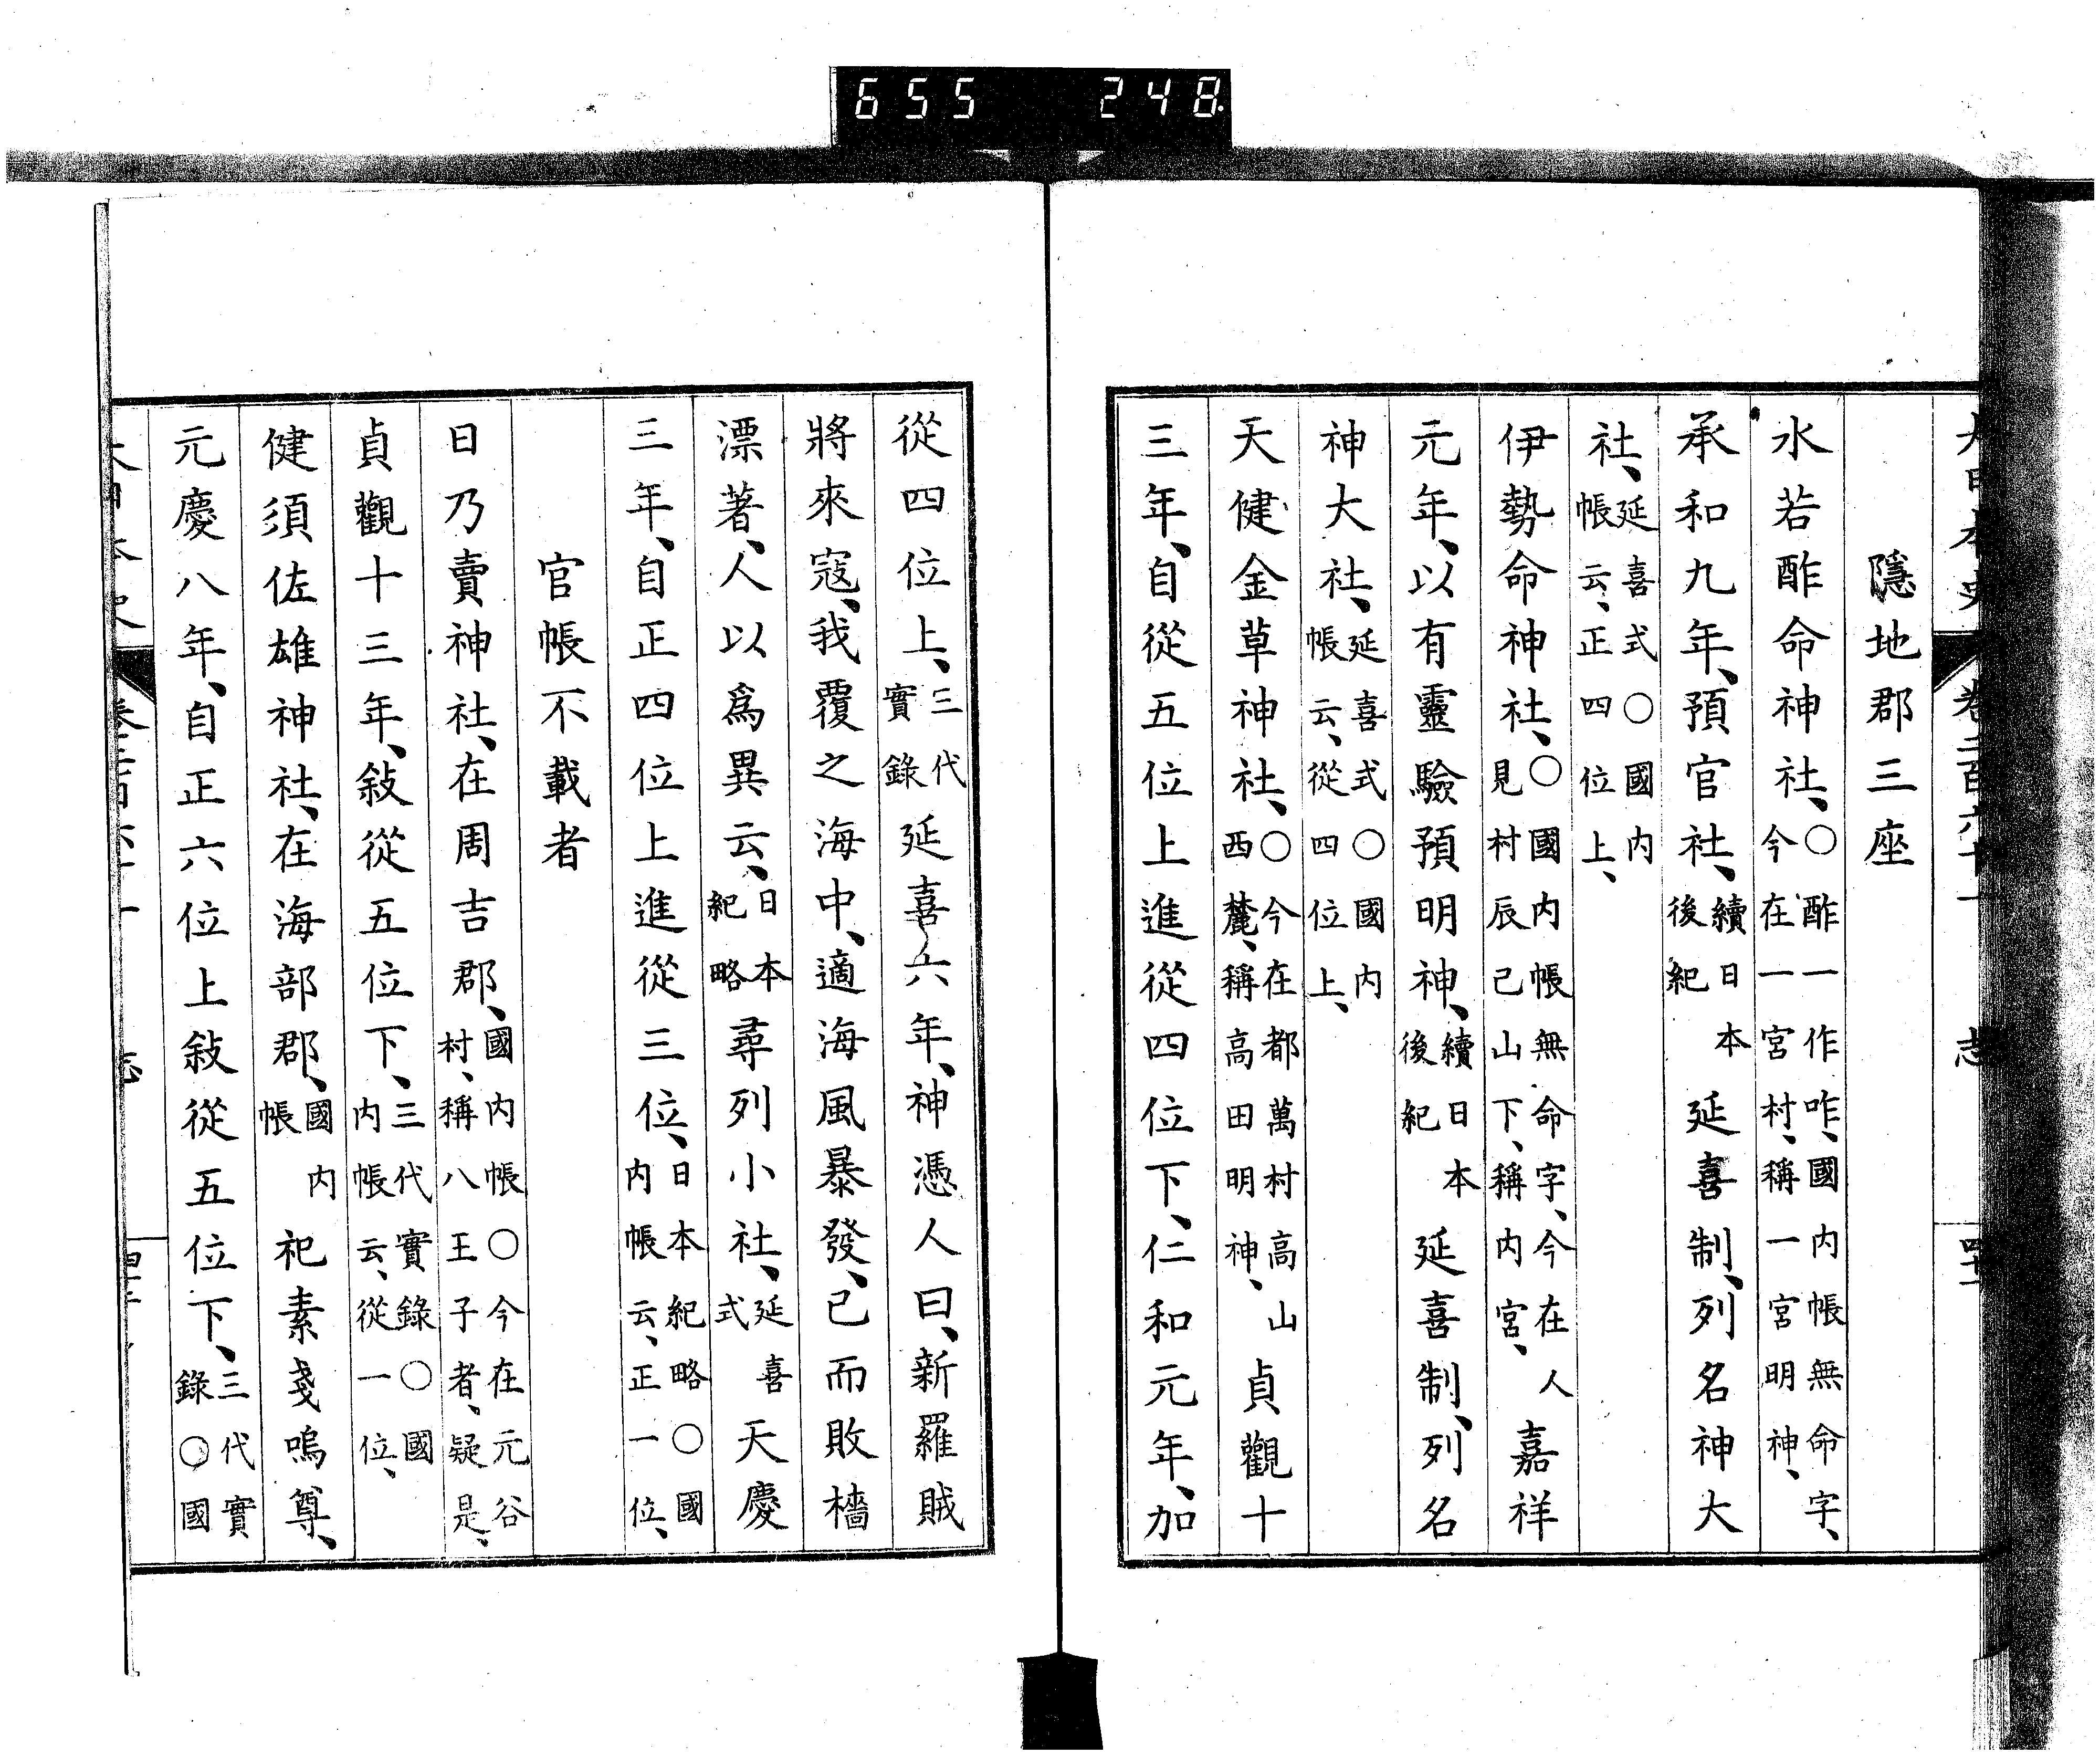 655 248
大日本史 卷二百六十一 志
隱地郡三座
水若酢命神社、〇酢一作咋、國内帳無命字、今在一宮村、稱一宮明神、
承和九年、預官社、續日本後紀延喜制、列名神大
社、延喜式〇國内帳云、正四位上、
伊勢命神社、〇國内帳無命字、今在人見村辰己山下、稱内宮、嘉祥
元年、以有靈驗預明神、續日本後紀延喜制、列名
神大社、延喜式〇國内帳云、從四位上、
天健金草神社、〇今在都萬村高山西麓、稱高田明神、貞觀十
三年、自從五位上進從四位下、仁和元年、加
從四位上、三代實錄延喜六年、神憑人曰、新羅賊
將來寇、我覆之海中、適海風暴發、已而敗檣
漂著、人以爲異云、日本紀略尋列小社、延喜式天慶
三年、自正四位上進從三位、日本紀略〇國内帳云、正一位、
官帳不載者
日乃賣神社、在周吉郡、國内帳〇今在元谷村、稱八王子者、疑是、
貞觀十三年、敍從五位下、三代實錄〇國内帳云、從一位、
健須佐雄神社、在海部郡、國内帳祀素戔嗚尊、
元慶八年、自正六位上敍從五位下、三代實錄〇國